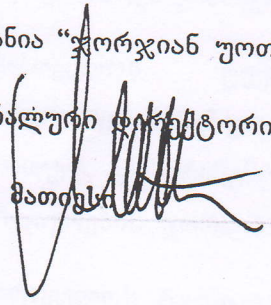 ანია “ჯორჯიან უოთ
ალური დირექტორი
მათიესი